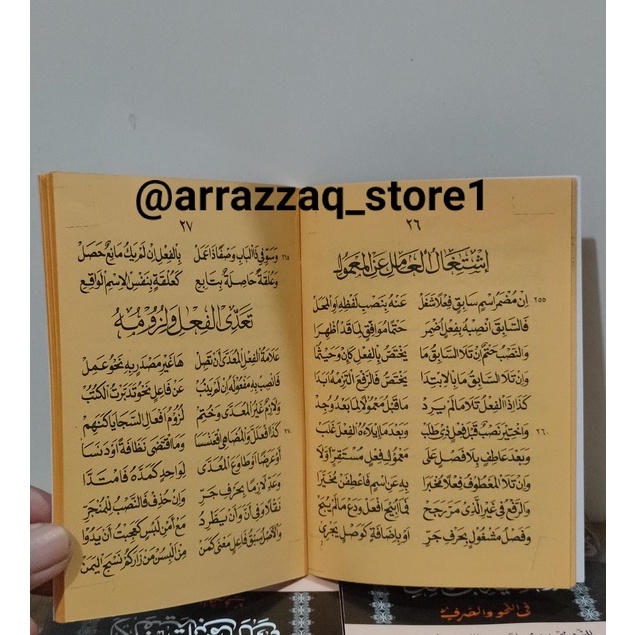 @arrazzaq_store1
٢٦
اِشْتِغَالُ الْعَامِلِ عَنِ الْمَعْمُولِ
٢٥٥ إِنْ مُضْمَرُ اسْمٍ سَابِقٍ فِعْلًا شَغَلْ عَنْهُ بِنَصْبِ لَفْظِهِ أَوِ الْمَحَلْ
فَالسَّابِقَ انْصِبْهُ بِفِعْلٍ أُضْمِرَا حَتْمًا مُوَافِقٍ لِمَا قَدْ أُظْهِرَا
وَالنَّصْبُ حَتْمٌ إِنْ تَلَا السَّابِقُ مَا يَخْتَصُّ بِالْفِعْلِ كَإِنْ وَحَيْثُمَا
وَإِنْ تَلَا السَّابِقُ مَا بِالْاِبْتِدَا يَخْتَصُّ فَالرَّفْعَ الْتَزِمْهُ أَبَدَا
كَذَا إِذَا الْفِعْلُ تَلَا مَا لَمْ يَرِدْ مَا قَبْلُ مَعْمُولًا لِمَا بَعْدُ وُجِدْ
٢٦٠ وَاخْتِيرَ نَصْبٌ قَبْلَ فِعْلٍ ذِي طَلَبْ وَبَعْدَ مَا إِيلَاؤُهُ الْفِعْلَ غَلَبْ
وَبَعْدَ عَاطِفٍ بِلَا فَصْلٍ عَلَى مَعْمُولِ فِعْلٍ مُسْتَقِرٍّ أَوَّلَا
وَإِنْ تَلَا الْمَعْطُوفُ فِعْلًا مُخْبَرَا بِهِ عَنِ اسْمٍ فَاعْطِفَنْ مُخَيَّرَا
وَالرَّفْعُ فِي غَيْرِ الَّذِي مَرَّ رَجَحْ فَمَا أُبِيحَ افْعَلْ وَدَعْ مَا لَمْ يُبَحْ
وَفَصْلُ مَشْغُولٍ بِحَرْفِ جَرِّ أَوْ بِإِضَافَةٍ كَوَصْلٍ يَجْرِي
٢٧
٢٦٥ وَسَوِّ فِي ذَا الْبَابِ وَصْفًا ذَا عَمَلْ بِالْفِعْلِ إِنْ لَمْ يَكُ مَانِعٌ حَصَلْ
وَعُلْقَةٌ حَاصِلَةٌ بِتَابِعِ كَعُلْقَةٍ بِنَفْسِ الْاِسْمِ الْوَاقِعِ
تَعَدِّي الْفِعْلِ وَلُزُومُهُ
عَلَامَةُ الْفِعْلِ الْمُعَدَّى أَنْ تَصِلْ هَا غَيْرِ مَصْدَرٍ بِهِ نَحْوُ عَمِلْ
فَانْصِبْ بِهِ مَفْعُولَهُ إِنْ لَمْ يَنُبْ عَنْ فَاعِلٍ نَحْوُ تَدَبَّرْتُ الْكُتُبْ
وَلَازِمٌ غَيْرُ الْمُعَدَّى وَحُتِمْ لُزُومُ أَفْعَالِ السَّجَايَا كَنَهِمْ
٢٧٠ كَذَا افْعَلَلَّ وَالْمُضَاهِي اقْعَنْسَسَا وَمَا اقْتَضَى نَظَافَةً أَوْ دَنَسَا
أَوْ عَرَضًا أَوْ طَاوَعَ الْمُعَدَّى لِوَاحِدٍ كَمَدَّهُ فَامْتَدَّا
وَعَدِّ لَازِمًا بِحَرْفِ جَرِّ وَإِنْ حُذِفْ فَالنَّصْبُ لِلْمُنْجَرِّ
نَقْلًا وَفِي أَنَّ وَأَنْ يَطَّرِدُ مَعْ أَمْنِ لَبْسٍ كَعَجِبْتُ أَنْ يَدُوا
وَالْأَصْلُ سَبْقُ فَاعِلٍ مَعْنًى كَمَنْ مِنْ أَلْبِسَنْ مَنْ زَارَكُمْ نَسْجَ الْيَمَنْ
فى النحو والصرف